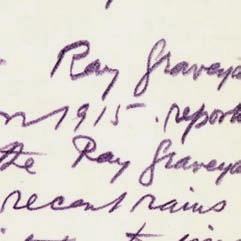 Ray Graveya
1915. report
the Ray Graveya
recent rains